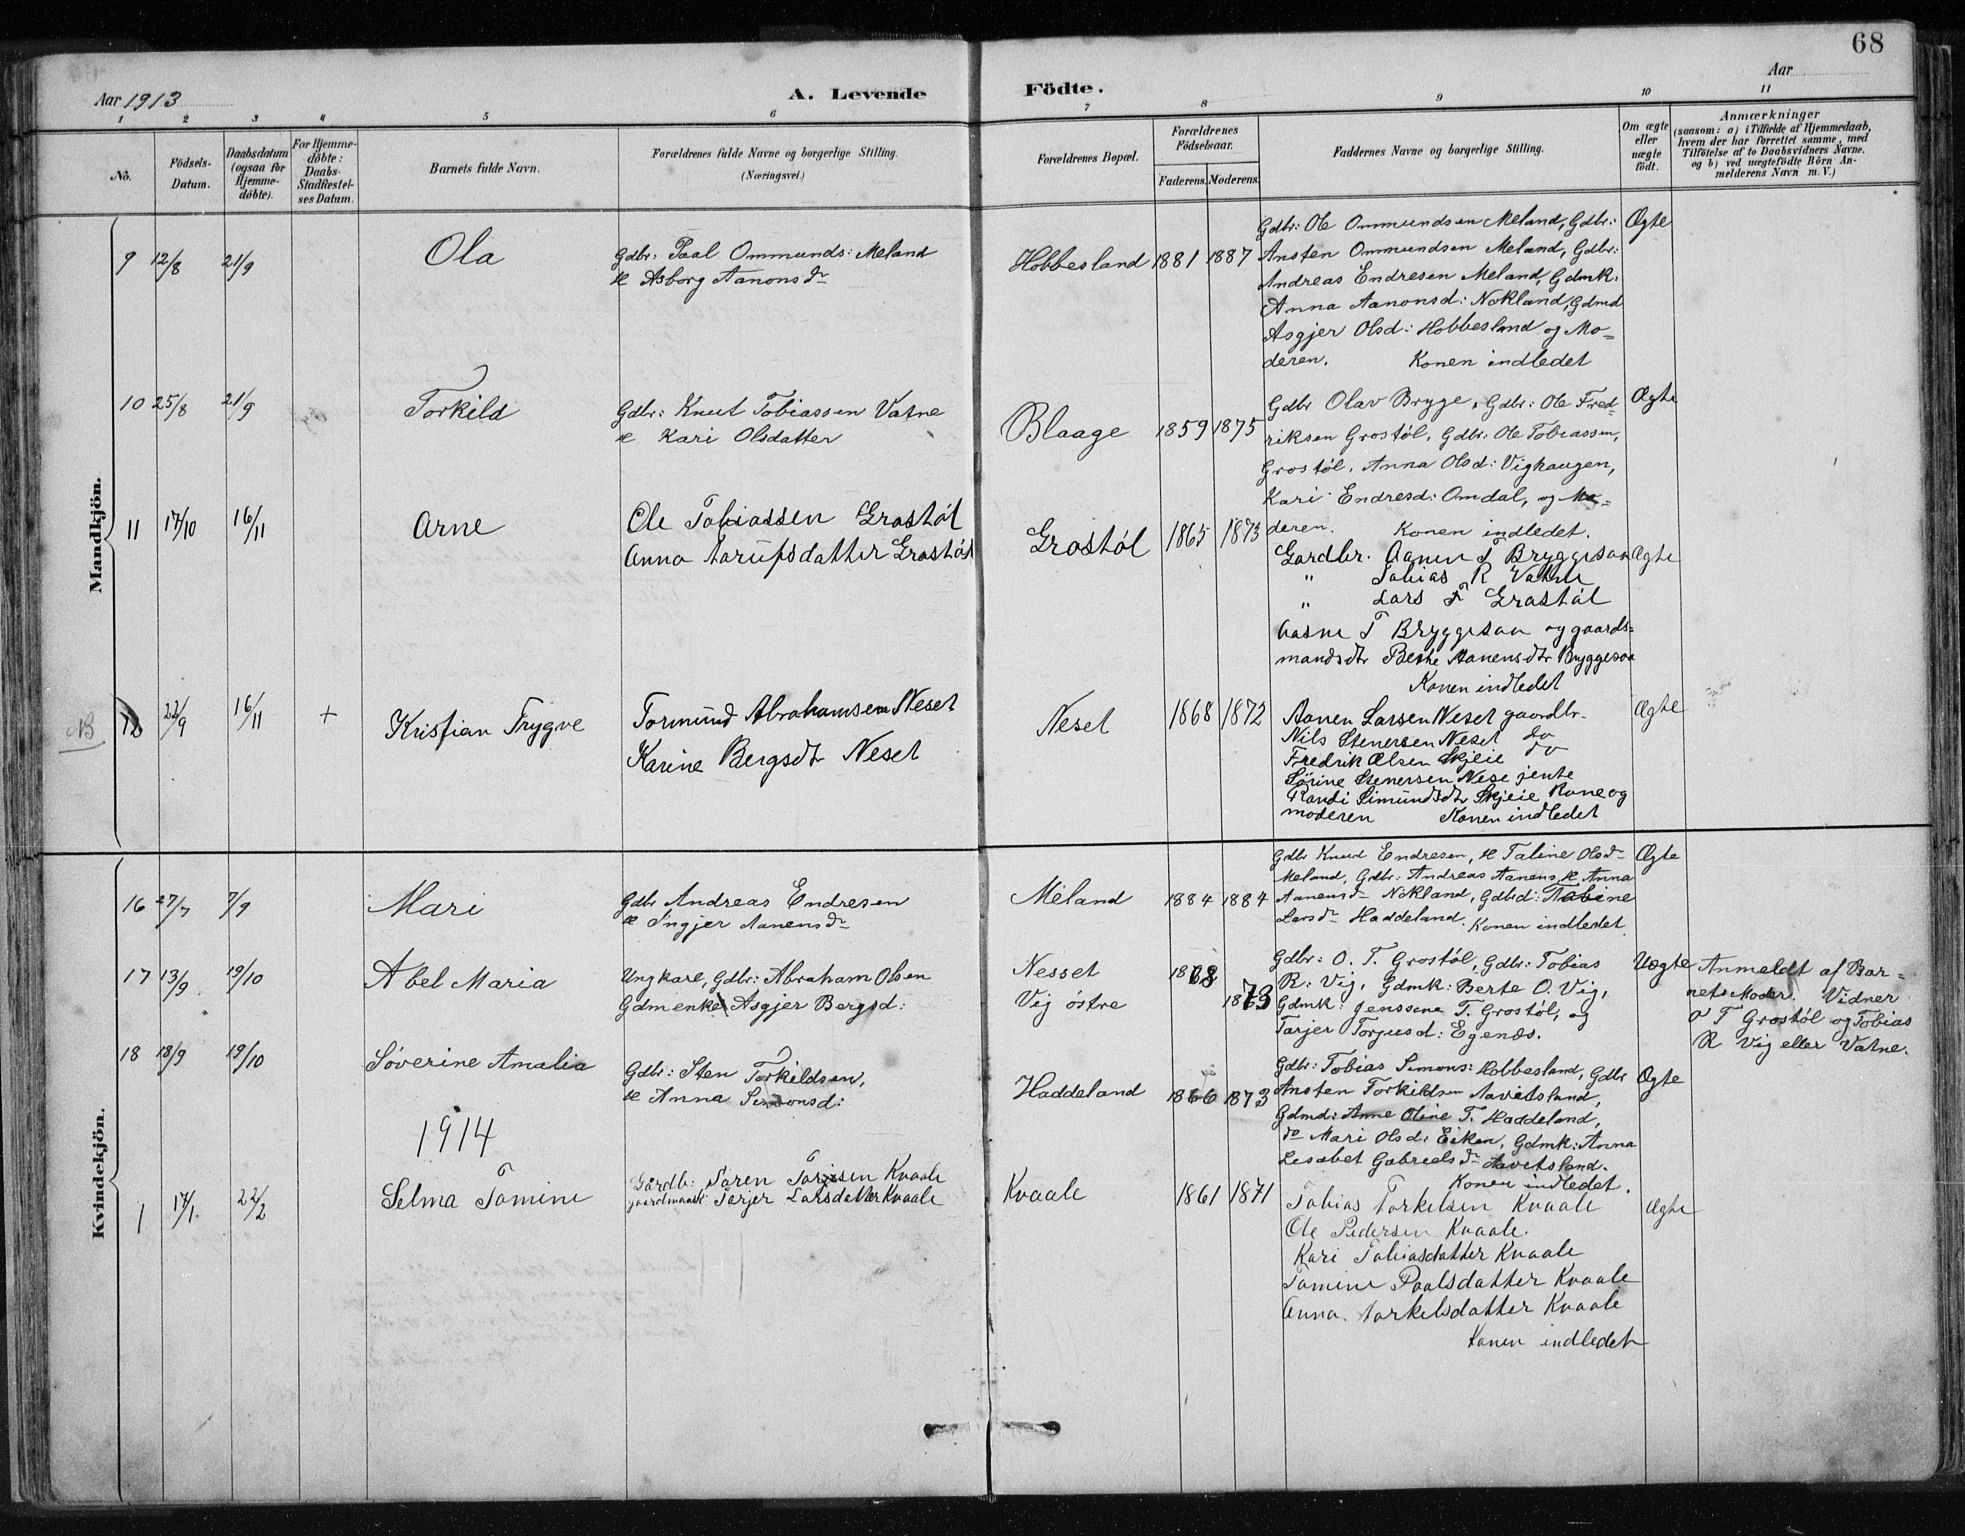 68
Aar 1913
A. Levende Födte.
Aar
1 2 3 4 5 6 7 8 9 10 11
No.
Födsels-Datum.
Daabsdatum (ogsaa för Hjemme-döbte).
For Hjemme-döbte: Daabs-Stadfæstel-ses Datum.
Barnets fulde Navn.
Forældrenes fulde Navne og borgerlige Stilling.
(Næringsvei.)
Forældrenes Bopæl.
Forældrenes Födselsaar.
Faderens. Moderens.
Faddernes Navne og borgerlige Stilling.
Om ægte eller uægte födt.
Anmærkninger
(saasom: a) i Tilfælde af Hjemmedaab,
hvem der har forrettet samme, med
Tilföielse af to Daabsvidners Navne.
og b) ved uægtefödte Börn An-
melderens Navn m. V.)
Mandkjön.
9 12/8 21/9 Ola
Gdbr: Paal Ommunds: Meland
& Asborg Aanonsdr
Hobbesland 1881 1887
Gdbr: Ole Ommundsen Meland, Gdbr:
Ansten Ommundsen Meland, Gdbr:
Andreas Endresen Meland, Gdmk:
Anna Aanonsd: Nokland, Gdmd
Asgjer Olsd: Hobbesland og Mo=
deren. Konen indledet
Ægte
10 25/8 21/9 Torkild
Gdbr: Knut Tobiassen Vatne
& Kari Olsdatter
Blaage 1859 1875
Gdbr Olav Bryge, Gdbr: Ole Fred=
riksen Grostöl, Gdbr: Ole Tobiassen,
Grostöl, Anna Olsd: Vighaugen,
Kari Endresd: Omdal, og Mo=
deren. Konen indledet.
Ægte
11 17/10 16/11 Arne
Ole Tobiassen Grastöl
Anna Aarupsdatter Grastöl
Grostöl 1865 1873
Gardbr. Aanen T Bryggesaa
" Tobias R Vatne
" Lars F Grastöl
Aasne T Bryggesaa og gaards=
mandsdtr Berte Aanensdtr Bryggesaa
Konen indledet
Ægte
NB 12 22/9 16/11 + Kristian Trygve
Tormund Abrahamsen Neset
Karine Bergsdtr Neset
Neset 1868 1872
Aanen Larsen Neset gaardbr.
Nils Stenersen Neset do
Fredrik Olsen Skjeie do
Sörine Stenersen Nese jente
Randi Simundsdtr Skjeie Kone og
moderen Konen indledet
Ægte
Kvindekjön.
16 27/7 7/9 Mari
Gdbr Andreas Endresen
& Ingjer Aanensdr
Meland 1884 1884
Gdbr Knud Endresen, & Taline Olsdr
Meland, Gdbr: Andreas Aanens, & Anna
Aanensdr Nokland, Gdbd: Tabine
Larsdr Haddeland. Konen indledet.
Ægte
17 13/9 19/10 Abel Maria
Ungkarl, Gdbr: Abraham Olsen
Gdmenke Asgjer Bergsd:
Nesset
Vig östre
1873
Gdbr: O. T. Grostöl, Gdbr: Tobias
R: Vig, Gdmk: Berte O. Vig,
Gdmk: Jenssene T. Grostöl, og
Tarjer Torjusd: Egenæs.
Uægte
Anmeldt af Bar=
nets Moder. Vidner
O T Grostöl og Tobias
R Vig eller Vatne.
18 18/9 19/10 Söverine Amalia
Gdbr: Sten Torkildsen,
& Anna Simonsd:
Haddeland 1866 1873
Gdbr: Tobias Simons: Hobbesland, Gdbr
Ansten Torkildsen Aavitsland,
Gdmd: Anne Oline T. Haddeland,
do Mari Olsd: Eiken, Gdmk: Anna
Lisabet Gabrielsdr Aavitsland.
Konen indledet.
Ægte
1914
1 17/1. 22/2 Selma Tomine
Gårdb: Sören Torjesen Kvaale
gaardmansk: Tarjer Larsdatter Kvaale
Kvaale 1861 1871
Tobias Torkelsen Kvaale
Ole Pedersen Kvaale.
Kari Tobiasdatter Kvaale
Tomine Paalsdatter Kvaale
Anna. Torkelsdatter Kvaale
Konen indledet
Ægte